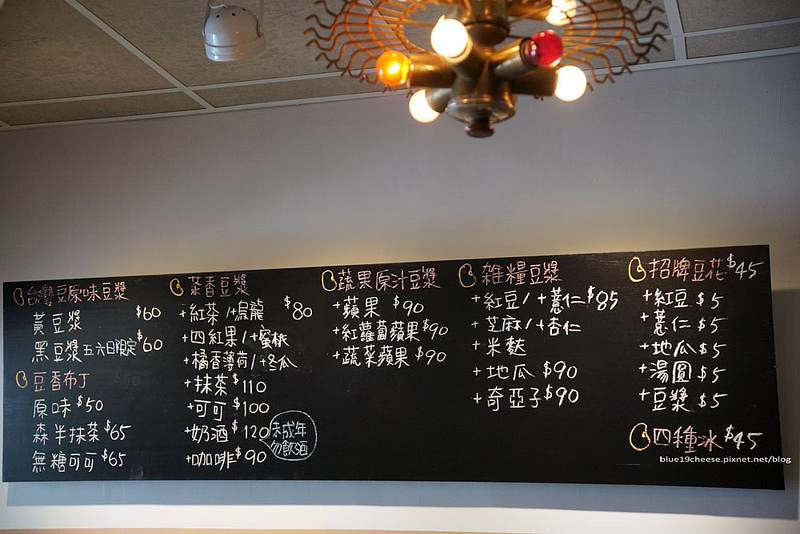 台灣豆原味豆漿
黃豆漿 $60
黑豆漿 五六日限定 $60
豆香布丁
原味 $50
森半抹茶 $65
無糖可可 $65
茶香豆漿
+紅茶/+烏龍 $80
+四紅果/+蜜桃
+橘香薄荷/+冬瓜
+抹茶 $110
+可可 $100
+奶酒 $120
未成年
勿飲酒
+咖啡 $90
蔬果原汁豆漿
+蘋果 $90
+紅蘿蔔蘋果 $90
+蔬菜蘋果 $90
雜糧豆漿
+紅豆/+薏仁 $85
+芝麻/+杏仁
+米麩
+地瓜 $90
+奇亞子 $90
招牌豆花 $45
+紅豆 $5
+薏仁 $5
+地瓜 $5
+湯圓 $5
+豆漿 $5
四種冰 $45
blue19cheese.pixnet.net/blog